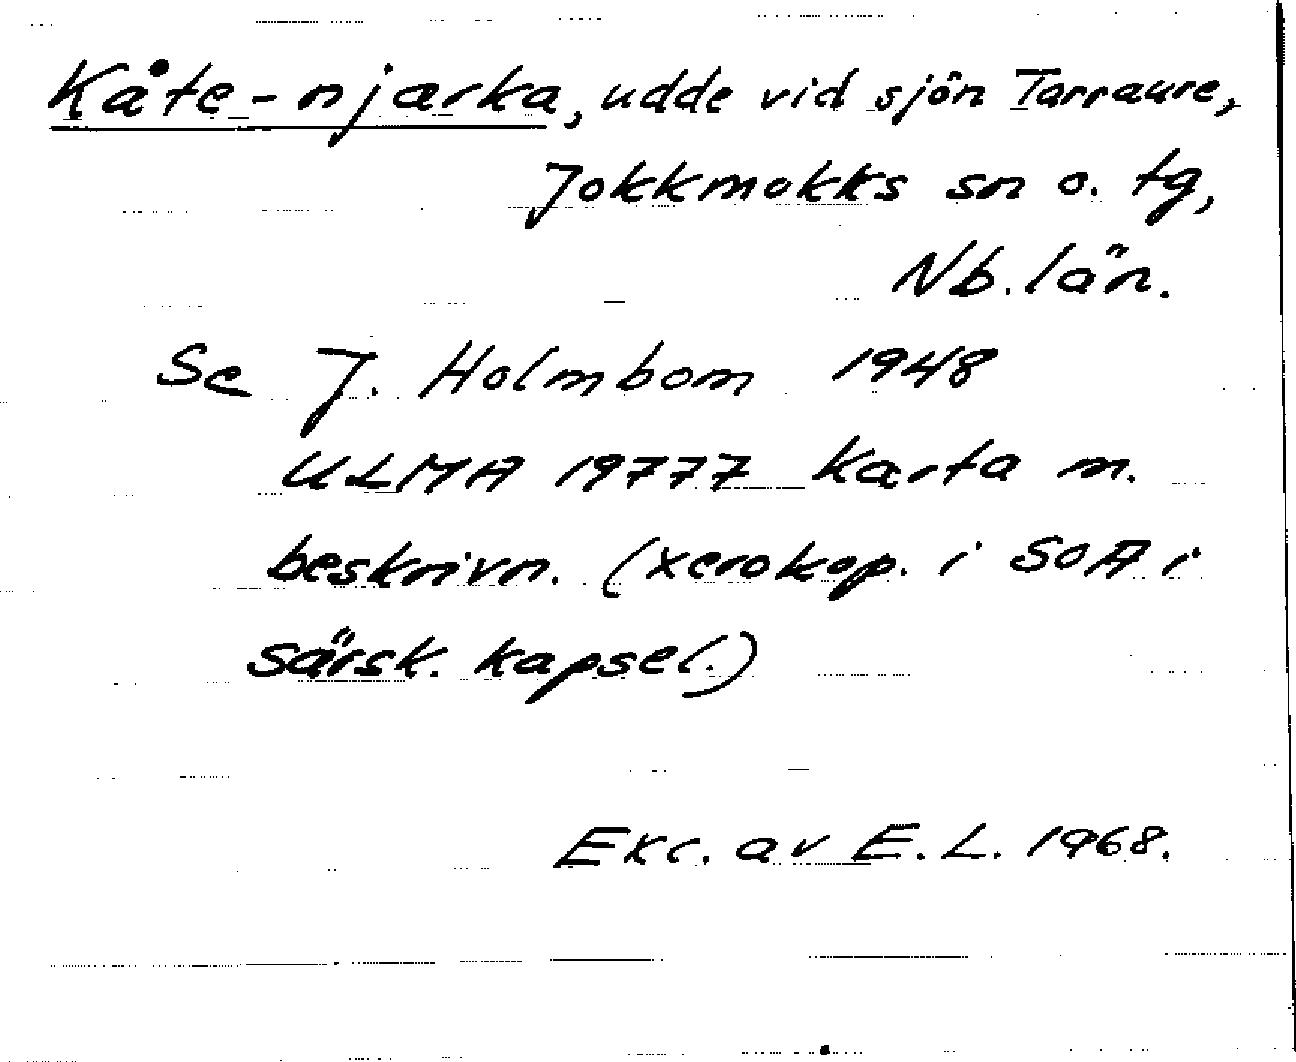 Kåte-njarka, udde vid sjön Tarraure,
Jokkmokks sn o. tg,
Nb. län.
Se J. Holmbom 1948
ULMA 19777 Karta m.
beskrivn. (xerokop. i SOA i
särsk. kapsel.)
Exc. av E. L. 1968.